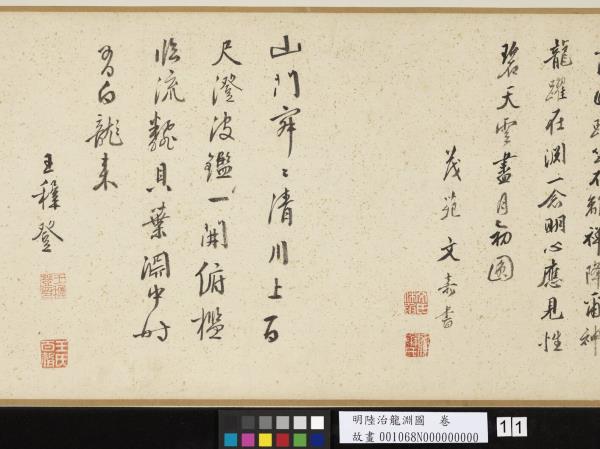 龍躍在淵一念明心應見性
碧天雲盡月初圓
茂苑文嘉書
山門寂〻清川上百
尺澄波鑑一開俯檻
臨流翻貝葉淵中時
有白龍來
王穉登
王氏百穀
明陸治龍淵圖 卷
故畫 001068N000000000
11